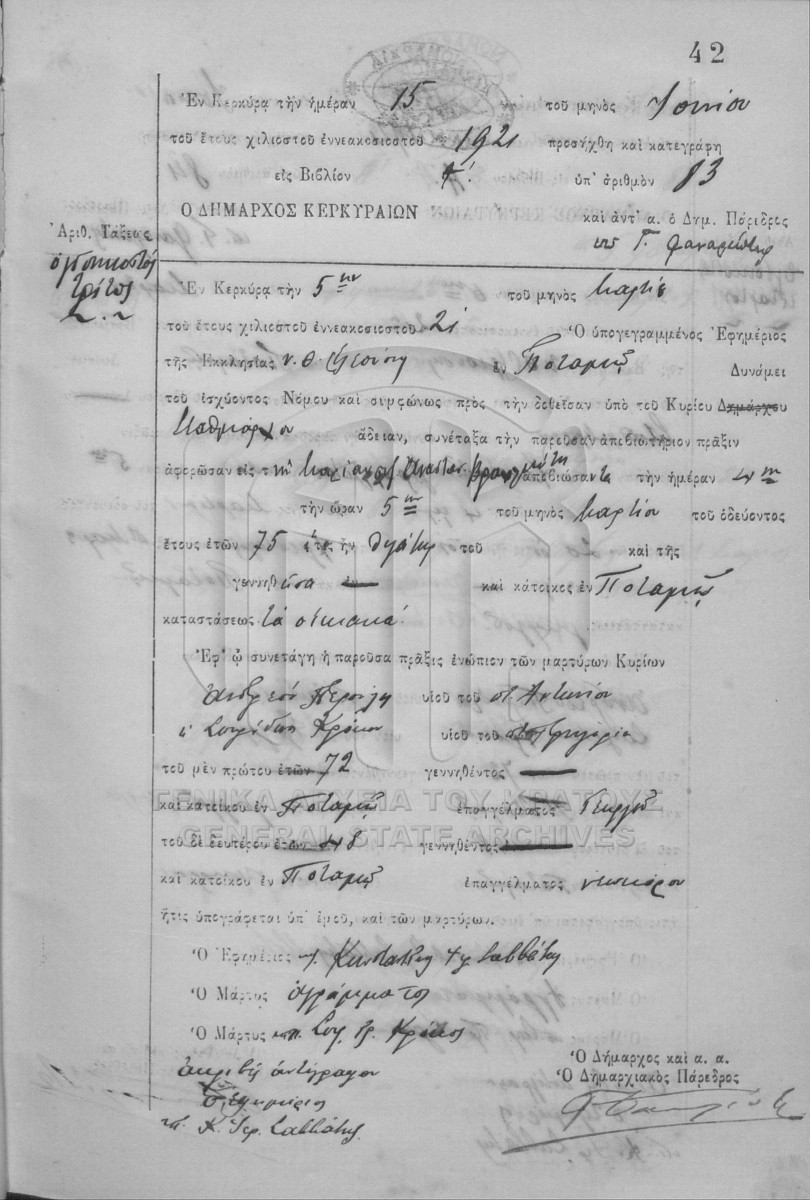 42
Ἐν Κερκύρᾳ τὴν ἡμέραν 15 τοῦ μηνὸς Ἰουνίου
τοῦ ἔτους χιλιοστοῦ ἐννεακοσιοστοῦ 1921 προσήχθη καὶ κατεγράφη
εἰς Βιβλίον ὑπ' ἀριθμὸν 83
Ο ΔΗΜΑΡΧΟΣ ΚΕΡΚΥΡΑΙΩΝ
καὶ ἀντ' α. ὁ Δημ. Πάρεδρος
Ἀριθ. Τάξεως
ὀγδοηκοστός
τρίτος
Ἐν Κερκύρᾳ τὴν 5ην τοῦ μηνὸς Μαρτίου
τοῦ ἔτους χιλιοστοῦ ἐννεακοσιοστοῦ 21 Ὁ ὑπογεγραμμένος Ἐφημέριος
τῆς Ἐκκλησίας ἐν Ποταμῷ Δυνάμει
τοῦ ἰσχύοντος Νόμου καὶ συμφώνως πρὸς τὴν δοθεῖσαν ὑπὸ τοῦ Κυρίου Δημάρχου
ἄδειαν, συνέταξα τὴν παρεῦσαν ἀπεβιωτήριον πρᾶξιν
ἀφορῶσαν εἰς τὴν ἀποβιώσαντα τὴν ἡμέραν 4ην
τὴν ὥραν 5ην τοῦ μηνὸς Μαρτίου τοῦ ὁδεύοντος
ἔτους ἐτῶν 75 ἥτις ἦν θυγάτηρ τοῦ καὶ τῆς
γεννηθεῖσα ἐν καὶ κάτοικος ἐν Ποταμῷ
καταστάσεως τὰ οἰκιακά
Ἐφ' ᾧ συνετάγη ἡ παροῦσα πρᾶξις ἐνώπιον τῶν μαρτύρων Κυρίων
υἱοῦ τοῦ Ἀντωνίου
Σπυρίδων Κρόκου υἱοῦ τοῦ Γρηγορίου
τοῦ μὲν πρώτου ἐτῶν 72 γεννηθέντος
καὶ κατοίκου ἐν Ποταμῷ ἐπαγγέλματος Γεωργοῦ
ΓΕΝΙΚΑ ΑΡΧΕΙΑ ΤΟΥ ΚΡΑΤΟΥΣ
GENERAL STATE ARCHIVES
τοῦ δὲ δευτέρου ἐτῶν 48 γεννηθέντος
καὶ κατοίκου ἐν Ποταμῷ ἐπαγγέλματος νεωκόρου
ἥτις ὑπογράφεται ὑπ' ἐμοῦ, καὶ τῶν μαρτύρων.
Ὁ Ἐφημέριος Κωνσταντῖνος Σαββάνης
Ὁ Μάρτυς ἀγράμματος
Ὁ Μάρτυς Σπ. Γρ. Κρόκος
ἀκριβὲς ἀντίγραφον
Ὁ Ἐφημέριος
Κ. Γρ. Σαββάνης
Ὁ Δήμαρχος καὶ α. α.
Ὁ Δημαρχιακὸς Πάρεδρος